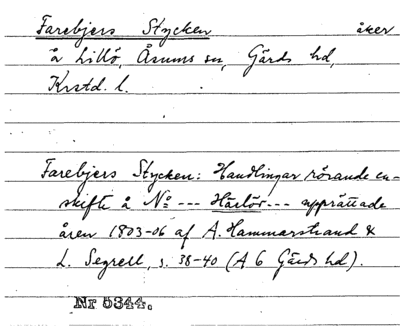 Farebjers Stycken åker
å Lillö, Åsums sn, Gärds hd,
Krstd. l.
Farebjers Stycken: Handlingar rörande en-
skifte å No --- Härlöv --- upprättade
åren 1803-06 af A. Hammarstrand &
L. Segrell, s. 38-40 (A 6 Gärds hd).
Nr 5344.